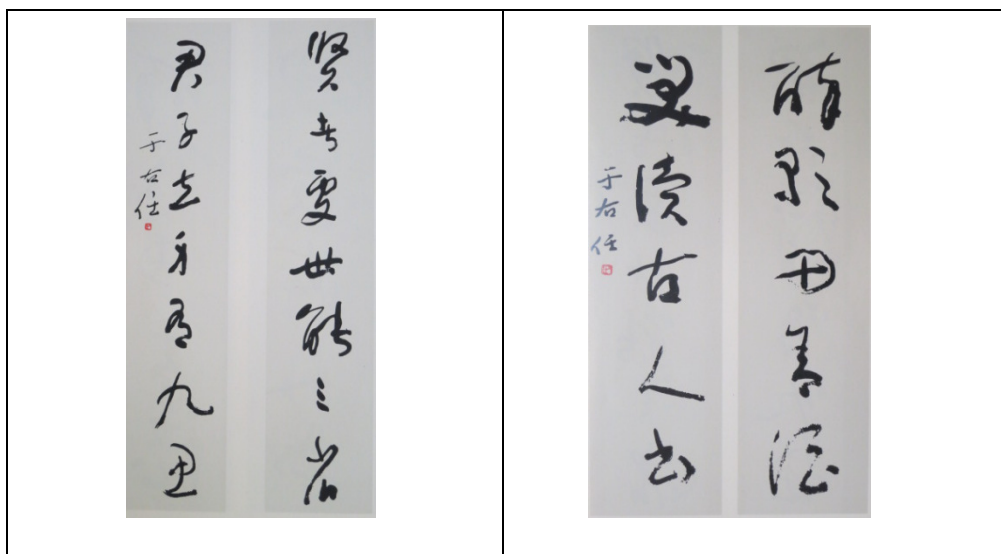 賢者處世能三省
君子立身有九思
于右任
醉歌田舍酒
笑讀古人書
于右任